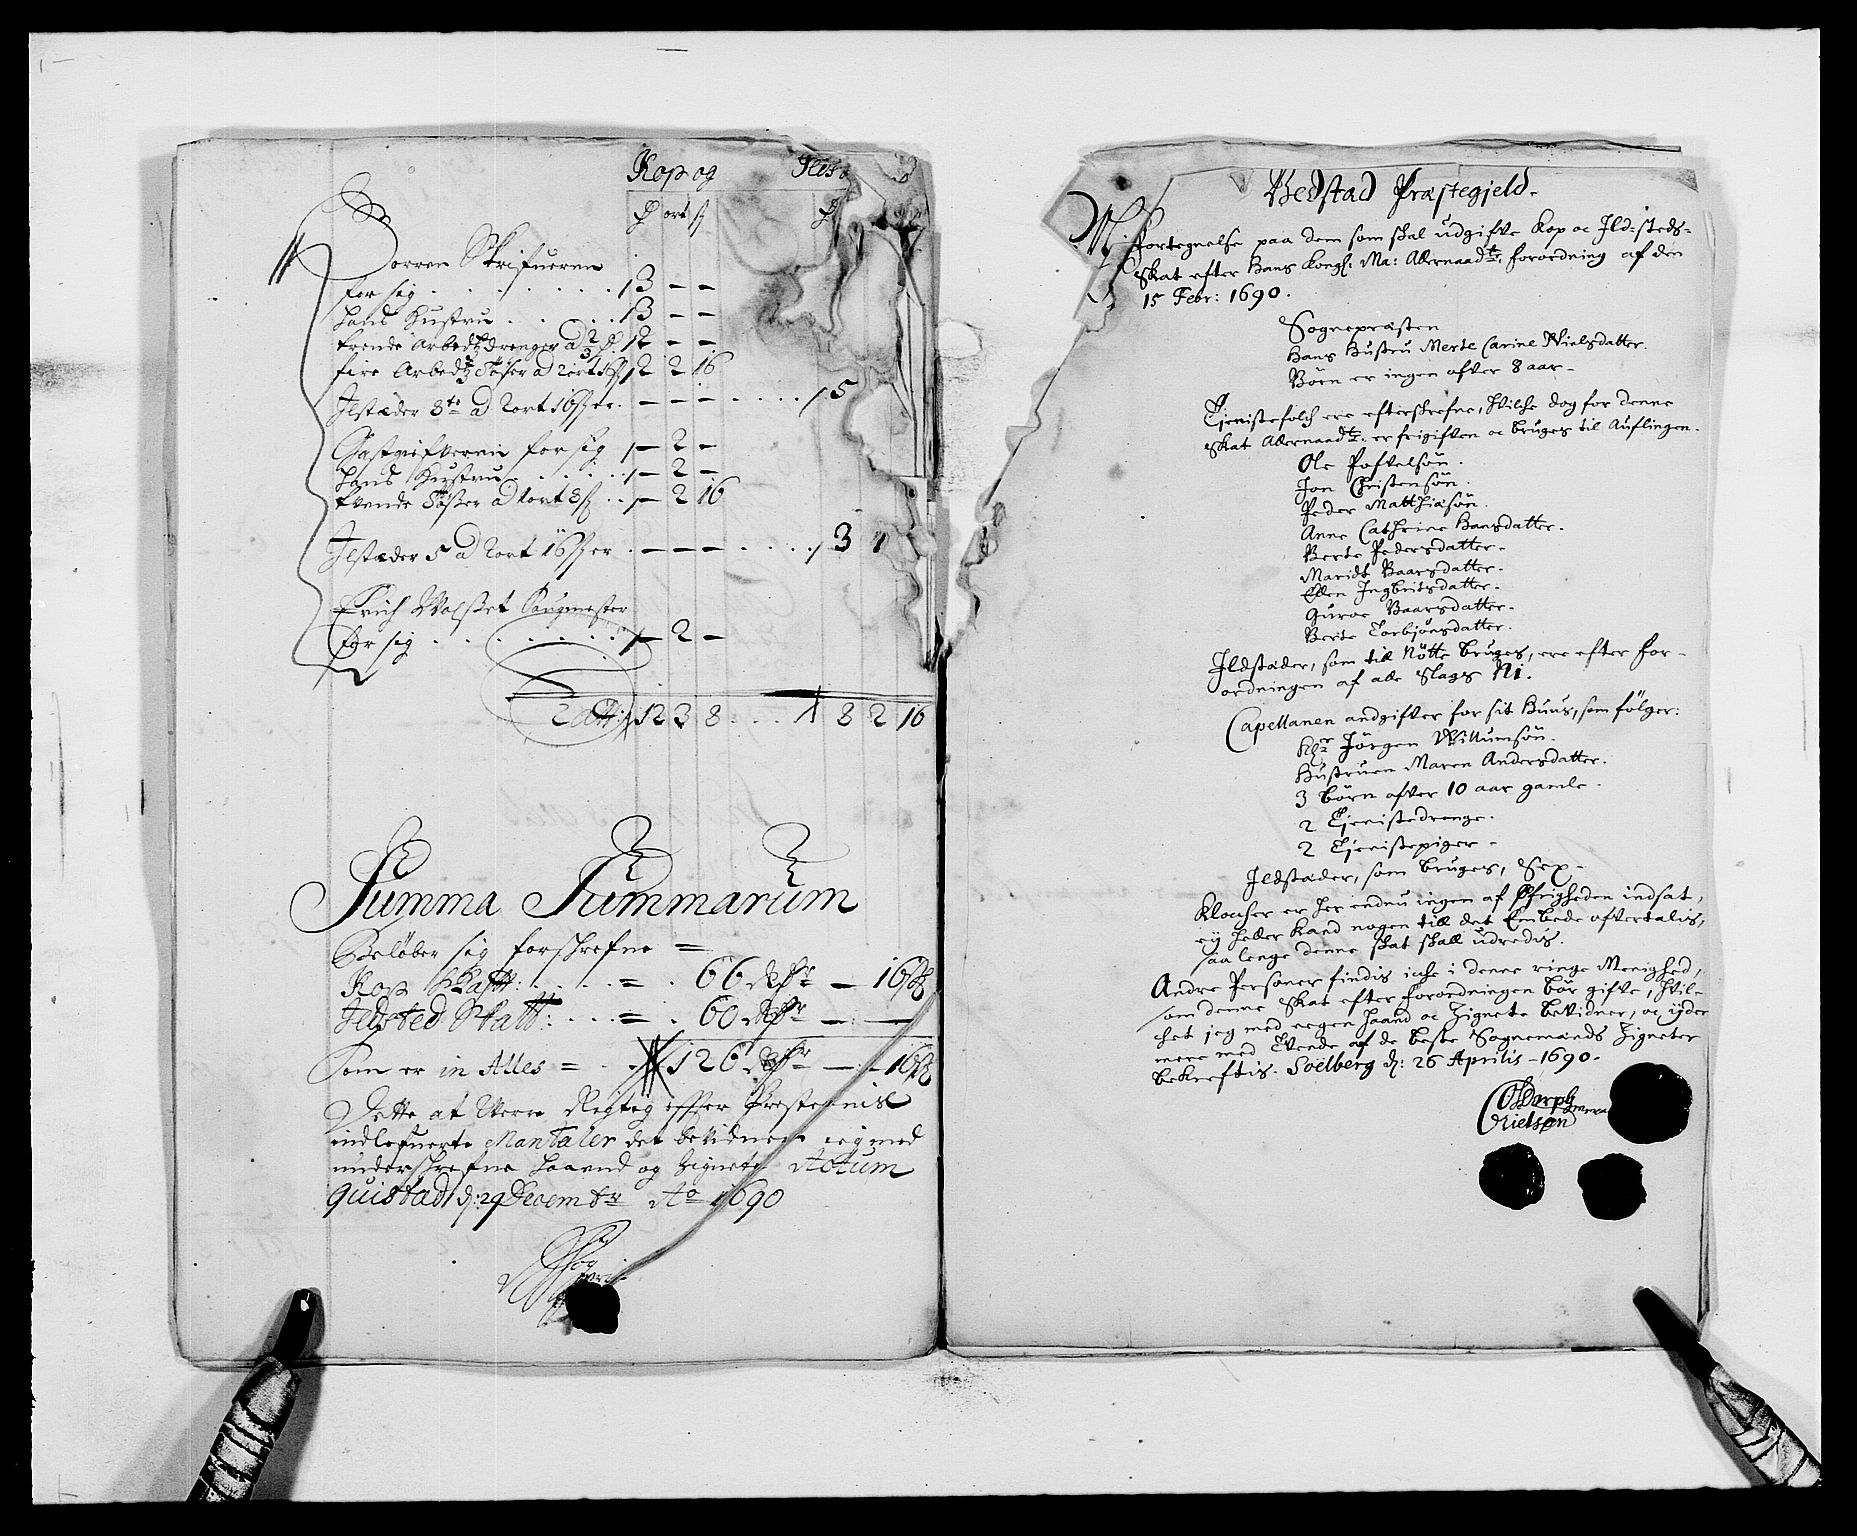 Kop og Ildst
ort
Sorren Skrifueren
for sig . . . . . . . 3 – –
hans Hustru . . . . . 3 – –
trende Arbeidsdrenger ad 2 2 – –
fire Arbeids Töser ad 2 ort 16 2 2 16
Jlstæder 8te ad 2 ort 16 er . – – – . . . . 5
Gastgifveren for sig – 2 –
hans Hustru . . . . – 2 –
tvende Töser ad 1 ort 8 . . – 2 16
Jlstæder 5 ad 2 ort 16 er . – – – . . . . 3 1
Erich Saugmester
for sig . . . . . . . – 2 –
Latt: 12 3 8 . . . 8 2 16
Summa Summarum
Beløber sig forschrefne =
Kop Skatt: . . . = . 66 Rdr – 16
Jldsted Skatt: . . . = . 60 Rdr – –
Som er in Alles = . . 126 Rdr – 16
Dette at Were Rigtig effter Presternis
indlefuerte Mantaler det bekidner ieg med
underschrefne haand og Zignete Actum
Quistad d: 29 Decembr Ao 1690
Bedstad Præstegjeld.
Fortegnelse paa dem som skal udgifve Kop oc Ild-steds-
skat efter Hans Kongl: Ma: Allernaadte: forordning af den
15 Febr: 1690.
Sognepræsten
Hans Hustru Merte Carine Nielsdatter.
Börn er ingen ofver 8 aar.
Tjenistefolch ere efterskrefne, hvilche dog for denne
skat Allernaadte: er frigifven oc bruges til Auflingen.
Ole Pofvelsön.
Jon Christensön.
Peder Matthiasön.
Anne Cathrine Hansdatter.
Berte Pedersdatter.
Maridt Baarsdatter.
Ellen Ingbritsdatter.
Guroe Baarsdatter.
Berte Torbjönsdatter.
Ildstæder, som till Nötte bruges, ere efter For-
ordningen af alle slags Ni.
Capellanen andgifver for sit Huus, som fölger:
Hr Jörgen Willumsön.
Hustruen Maren Andersdatter.
3 börn ofver 10 aar gamle.
2 Tjenistedrenge.
2 Tjenistepiger.
Ildstæder, som bruges, Sex.
Klocher er her endnu ingen af Öfrigheden indsat,
ey heller kand nogen till det Embede ofvertalis,
saa lenge denne skat skall udredis.
Andre Personer findis iche i denne ringe Menighed,
som denne Skat efter Forordningen bör gifve, hvil-
chet jeg med eegen haand oc Zignete bekidner, oc yder
mere med Tvende af de beste Sognemænds Zigneter
bekreftis. Soelberg d: 26 Aprilis – 1690.
Nielsen